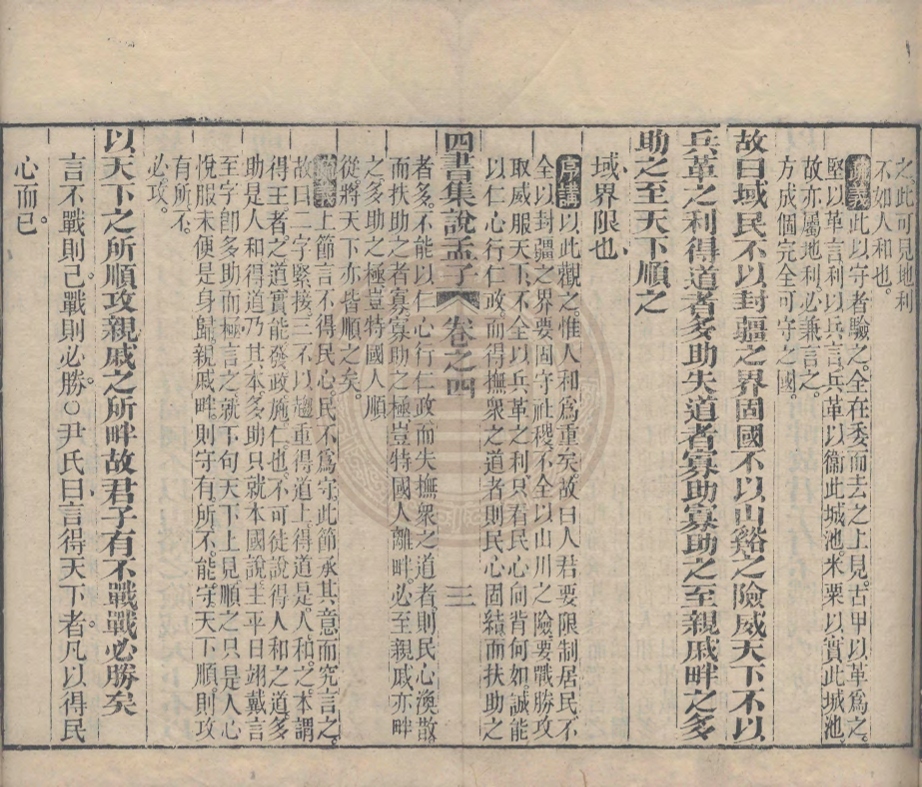 之此可見地利
不如人和也
疏義此以守者驗之全在委而去之上見古甲以革爲之
堅以革言利以兵言兵革以衞此城池米粟以實此城池
故亦屬地利必兼言之
方成個完全可守之國
故曰域民不以封疆之界固國不以山谿之險威天下不以
兵革之利得道者多助失道者寡助寡助之至親戚畔之多
助之至天下順之
域界限也
序講以此觀之惟人和爲重矣故曰人君要限制居民不
全以封疆之界要固守社稷不全以山川之險要戰勝攻
取威服天下不全以兵革之利只看民心向背何如誠能
以仁心行仁政而得撫衆之道者則民心固結而扶助之
四書集說孟子 卷之四 三
者多不能以仁心行仁政而失撫衆之道者則民心渙散
而扶助之者寡寡助之極豈特國人離畔必至親戚亦畔
之多助之極豈特國人順
從將天下亦皆順之矣
疏義上節言不得民心民不爲守此節承其意而究言之
故曰二字緊接三不以趨重得道上得道是人和之本謂
得王者之道實能發政施仁也不可徒說得人和之道多
助是人和得道乃其本多助只就本國說主平日翊戴言
至字卽多助而極言之就下句天下上見順之只是人心
悅服未便是身歸親戚畔則守有所不能守天下順則攻
有所不
必攻
以天下之所順攻親戚之所畔故君子有不戰戰必勝矣
言不戰則已戰則必勝○尹氏曰言得天下者凡以得民
心而已